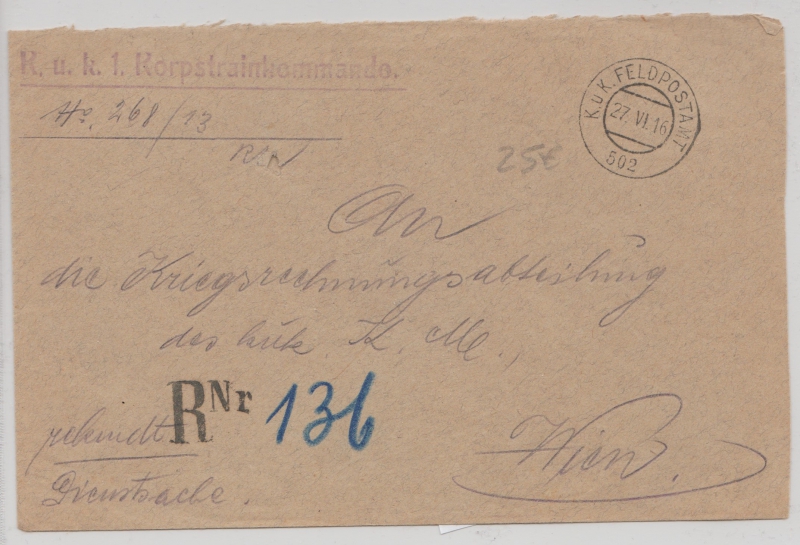 K. u. k. 1. Korpstrainkommando.
No. 268/13
K. u. K. FELDPOSTAMT
27. VI. 16
502
25€
An
die Kriegsrechnungsabteilung
des kuk. K. M.,
RNr 136
rekmdt
Wien.
Dienstsache.